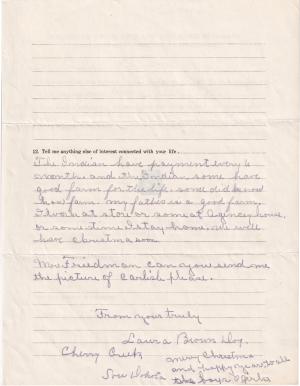 12. Tell me anything else of interest connected with your life.
The Indian have payment every 6
month and the Indian some have
good farm for the life, some did know
how farm. my father is a good farm.
I work at store or some at Agency house
or some time I stay home. we will
have Christmas soon
Mr Friedman can you send me
the picture of Carlish please.
From your truly
Laura Brown Dog.
Cherry Creek
Sou Dakota
merry Christmas
and happy year to all
the boys & girls